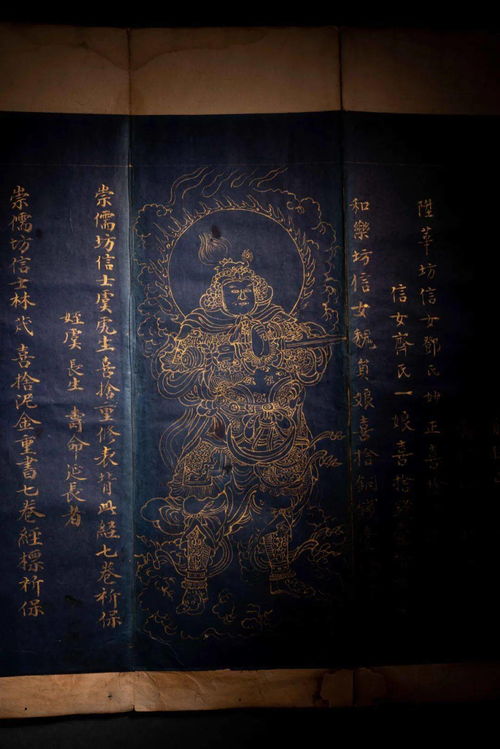 陞華坊信女鄭氏妙正喜捨
信女齊氏一娘喜捨
和樂坊信女魏員娘喜捨銅
崇儒坊信士虞虎生喜捨重修表背此經七卷祈保
姪虞長生 壽命延長者
崇儒坊信士林茂 喜捨泥金重書七卷經標祈保